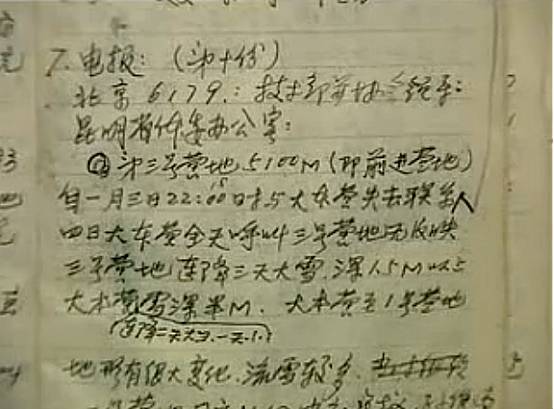 7.电报：（第十份）
北京6179：技术部并协会领导：
昆明省体委办公室：
①第三号营地5100M（即前进营地）
自一月三日22:00时与大本营失去联系
四日大本营全天呼叫三号营地无反映
三号营地连降三天大雪.深1.5M以上
大本营雪深半M. 大本营至1号营地
地形有很大变化.流雪较多.